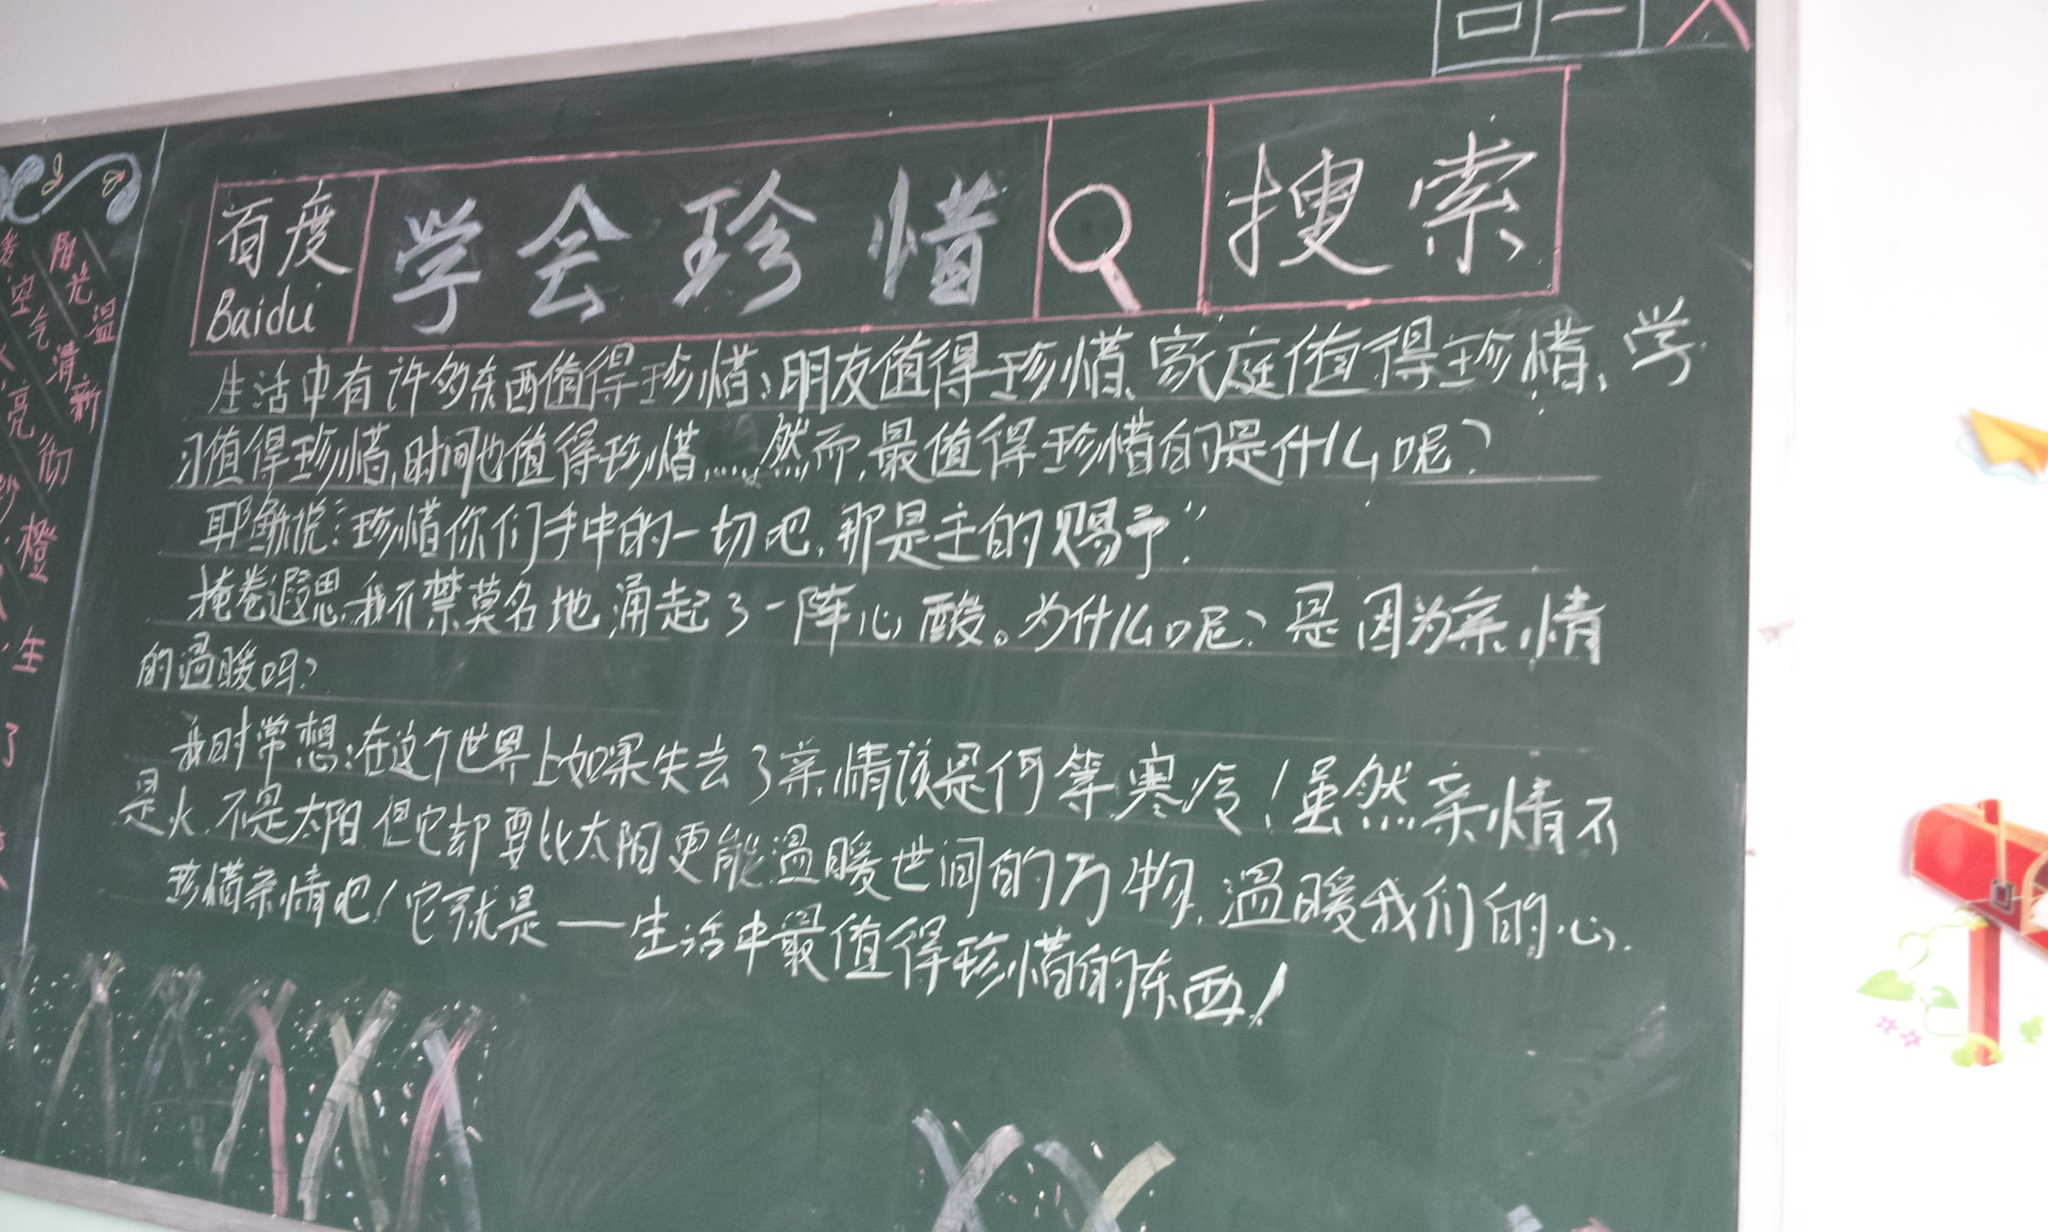 百度
Baidu
学会珍惜
搜索
生活中有许多东西值得珍惜:朋友值得珍惜、家庭值得珍惜、学
习值得珍惜,时间也值得珍惜……然而,最值得珍惜的是什么呢?
耶稣说:珍惜你们手中的一切吧,那是主的赐予"
掩卷遐思,我不禁莫名地涌起了一阵心酸。为什么呢?是因为亲情
的温暖吗?
我时常想:在这个世界上如果失去了亲情该是何等寒冷!虽然亲情不
是火,不是太阳,但它却要比太阳更能温暖世间的万物,温暖我们的心.
珍惜亲情吧!它就是——生活中最值得珍惜的东西!
阳光温
空气清新
亮彻橙
生
了